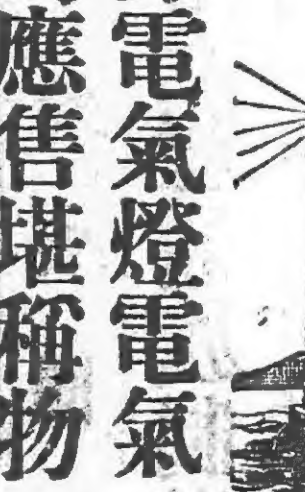 電氣燈電氣
應售堪稱物